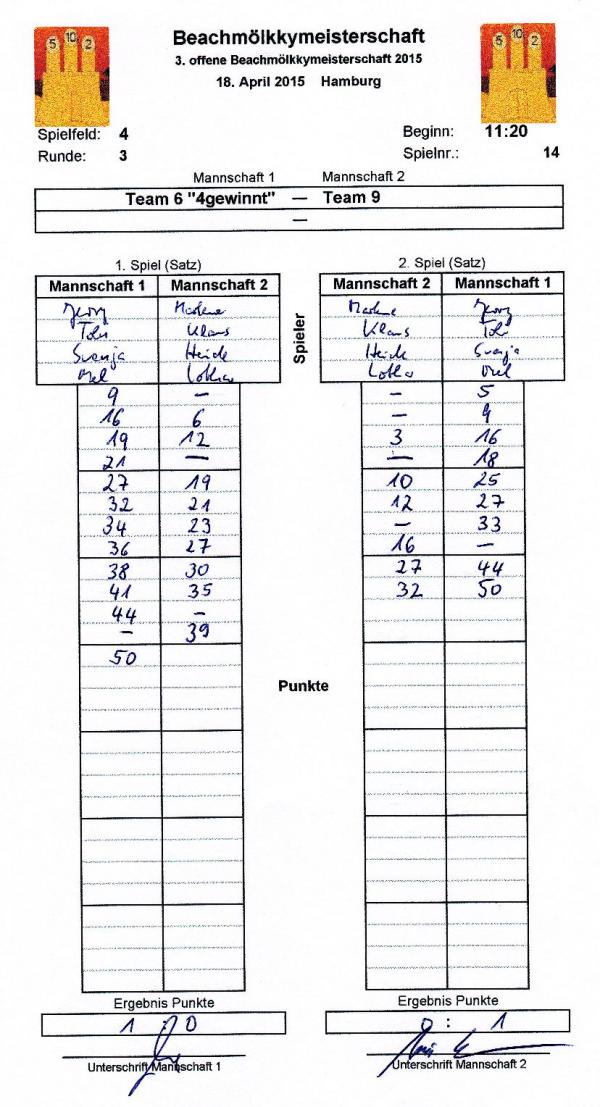 5 10 2
Beachmölkkymeisterschaft
5 10 2
3. offene Beachmölkkymeisterschaft 2015
18. April 2015 Hamburg
Spielfeld: 4
Beginn: 11:20
Runde: 3
Spielnr.: 14
Mannschaft 1 Mannschaft 2
Team 6 "4gewinnt" — Team 9
—
1. Spiel (Satz) 2. Spiel (Satz)
Mannschaft 1 Mannschaft 2 Mannschaft 2 Mannschaft 1
Marlene Marlene
Klaus Klaus
Svenja Heide Heide Svenja
Lothar Lothar
Spieler
9 — — 5
16 6 — 9
19 12 3 16
21 — — 18
27 19 10 25
32 21 12 27
34 23 — 33
36 27 16 —
38 30 27 44
41 35 32 50
44 —
— 39
50
Punkte
Ergebnis Punkte Ergebnis Punkte
1 : 0 0 : 1
Unterschrift Mannschaft 1 Unterschrift Mannschaft 2